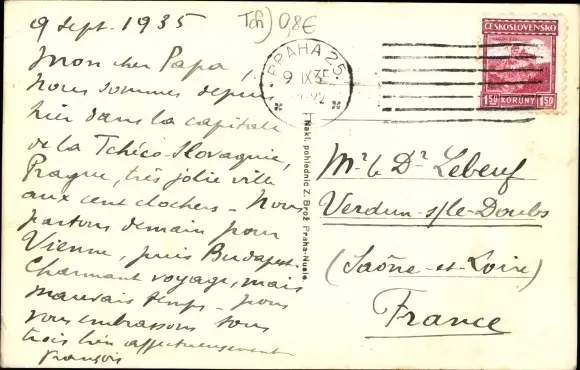 9 Sept. 1935
Tch) 0,8€
Mon cher Papa,
Nous sommes depuis
hier dans la capitale
de la Tchéco-Slovaquie,
Prague, très jolie ville
aux cent clochers - Nous
partons demain pour
Vienne, puis Budapest.
Charmant voyage, mais
mauvais temps - nous
vous embrassons tous
trois bien affectueusement
François
PRAHA 25
9 IX 35
ČESKOSLOVENSKO
1.50 KORUNY 1.50
Nakl. pohlednic Z. Brož Praha-Nusle
Mr. le Dr. Lebeuf
Verdun s/le-Doubs
(Saône-et-Loire)
France